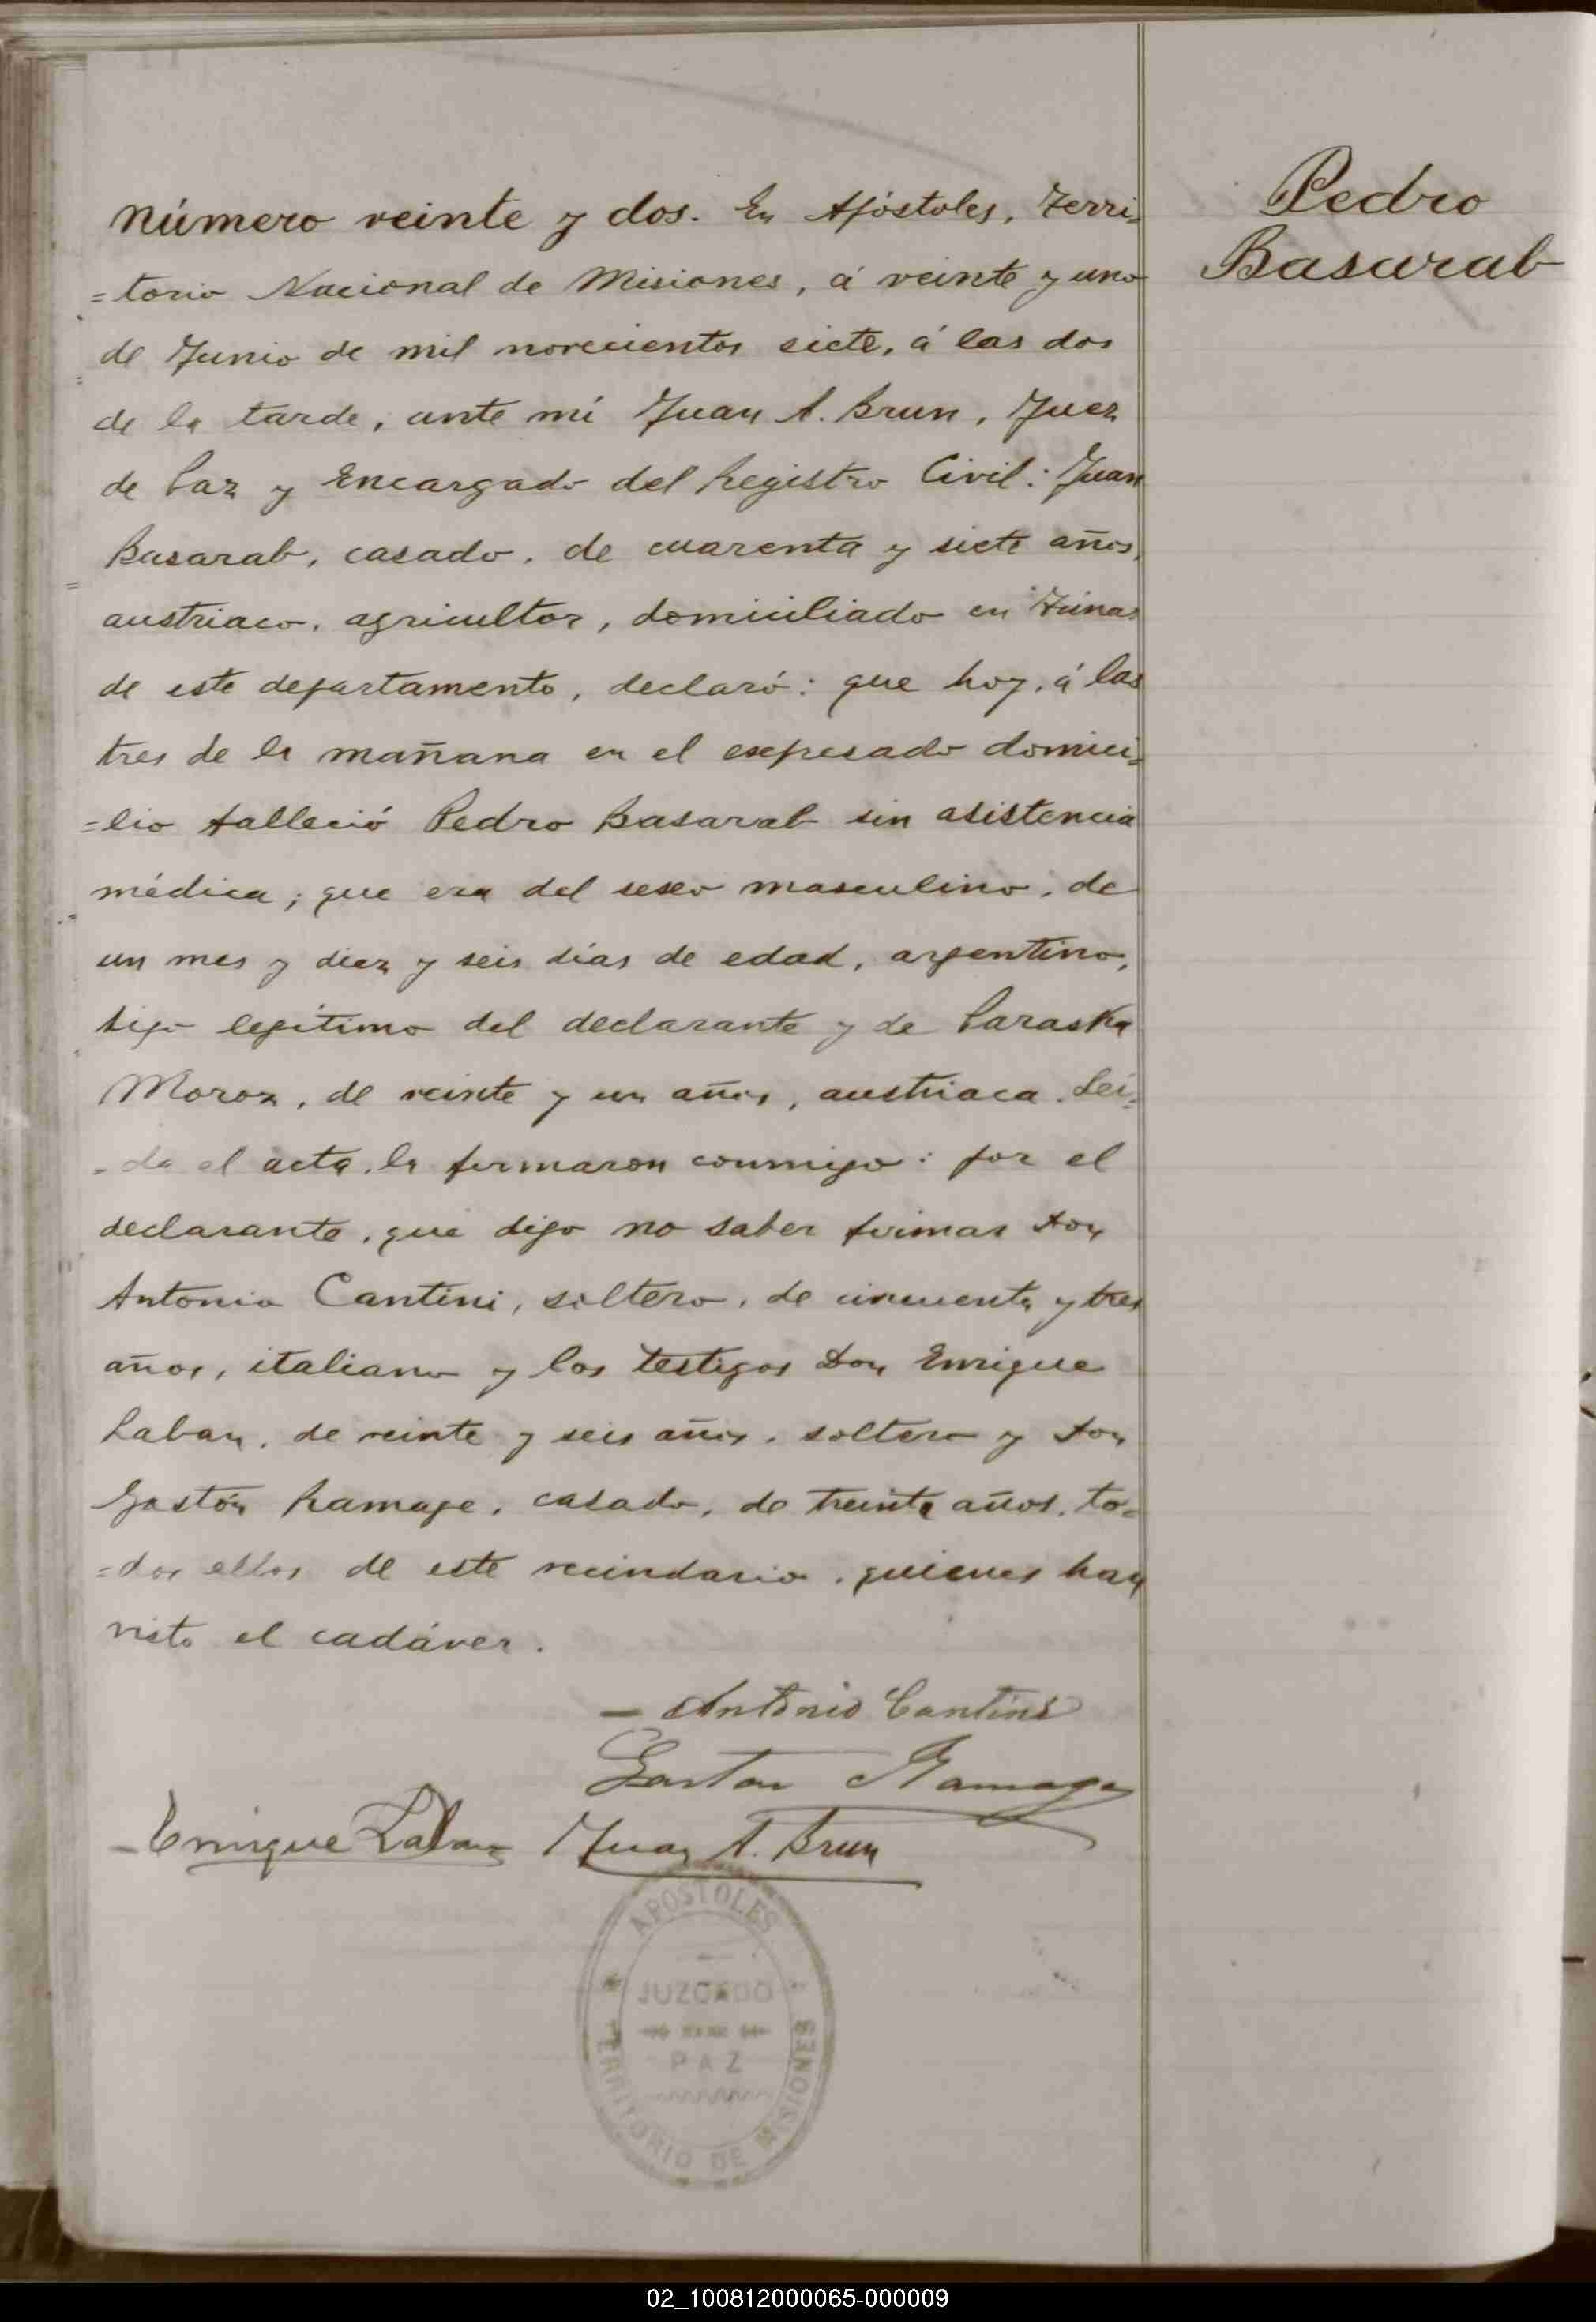 Número veinte y dos. En Apóstoles, Terri=
=torio Nacional de Misiones, á veinte y uno
de Junio de mil novecientos siete, á las dos
de la tarde, ante mí Juan A. Brun, Juez
de Paz y Encargado del Registro Civil: Juan
Basarab, casado, de cuarenta y siete años,
austriaco, agricultor, domiciliado en Tunas
de este departamento, declaró: que hoy, á las
tres de la mañana en el expresado domici=
=lio falleció Pedro Basarab sin asistencia
médica; que era del sexo masculino, de
un mes y diez y seis días de edad, argentino,
hijo legítimo del declarante y de Paraska
Moroz, de veinte y un años, austriaca. Leí=
=da el acta, la firmaron conmigo: por el
declarante, que dijo no saber firmar Don
Antonio Cantini, soltero, de cincuenta y tres
años, italiano y los testigos Don Enrique
Laban, de veinte y seis años, soltero y Don
Gastón Ramage, casado, de treinta años, to=
=dos ellos de este vecindario, quienes han
visto el cadáver.
Antonio Cantini
Gaston Ramage
Enrique Laban Juan A. Brun
APOSTOLES
JUZGADO
PAZ
TERRITORIO DE MISIONES
Pedro
Basarab
02_100812000065-000009